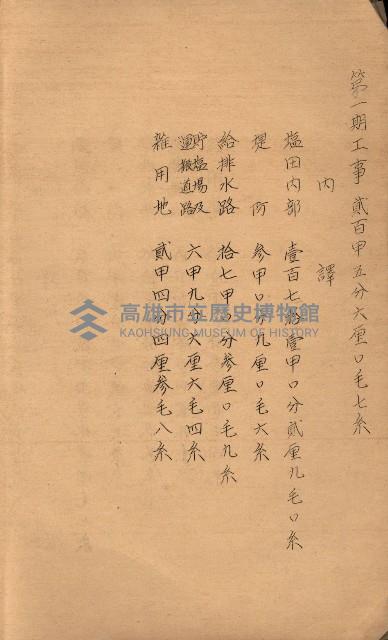 第一期工事 貳百甲五分六厘〇毛七糸
內譯
塩田內部 壹百七拾壹甲〇分貳厘九毛〇糸
堤防 參甲〇分九厘〇毛六糸
給排水路 拾七甲〇分參厘〇毛九糸
貯塩場及
運搬道路 六甲九分六厘六毛四糸
雑用地 貳甲四分四厘參毛八糸
高雄市立歷史博物館
KAOHSIUNG MUSEUM OF HISTORY